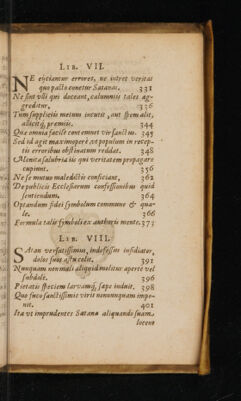 LIB. VII.
NE eijciantur errores, ne intret veritas
quo pacto conetur Satanas. 331
Ne sint vlli qui doceant, calumniis tales ag-
greditur. 336
Tum suppliciis metum incutit, aut spem alit,
allicitq́ præmiis. 344
Quæ omnia facile contemnet vir sanctus. 345
Sed id agit maximoperè ex populum in recep-
tis erroribus obstinatum reddat. 348
Monita salubria iis qui veritatem propagare
cupiunt. 356
Ne se mutuo maledictis conficiant. 362
De publicis Ecclesiarum confessionibus quid
sentiendum. 364
Optandum fidei symbolum commune & qua-
le. 366
Formula talis symboli ex authoris mente. 373
LIB. VIII.
SAtan versatissimus, indefessus insidiator,
dolos suos astu colit. 391
Nunquam non mali aliquid molitur apertè vel
subdolè. 396
Pietatis speciem larvamq́, sæpe induit. 398
Quo fuco sanctissimis viris nonnunquam impo-
nit. 401
Ita vt imprudentes Satanæ aliquando suam
locent